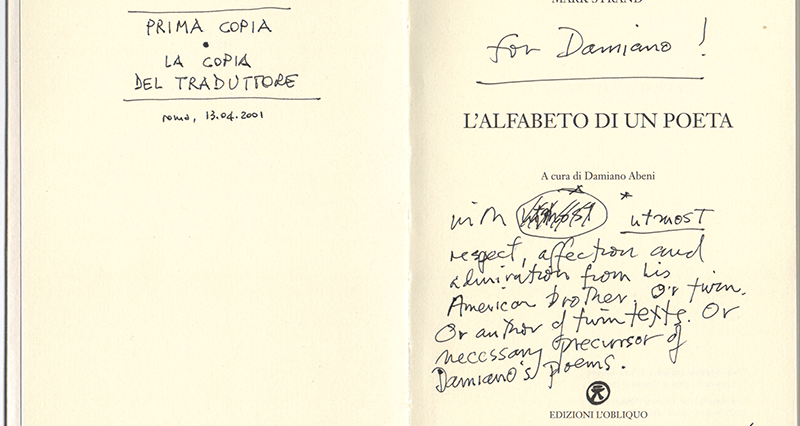 PRIMA COPIA
•
LA COPIA
DEL TRADUTTORE
roma, 13.04.2001
MARK STRAND
for Damiano!
L'ALFABETO DI UN POETA
A cura di Damiano Abeni
with utmost
respect, affection and
admiration from his
American brother. Or twin.
Or author of twin texts. Or
necessary precursor of
Damiano's poems.
EDIZIONI L'OBLIQUO